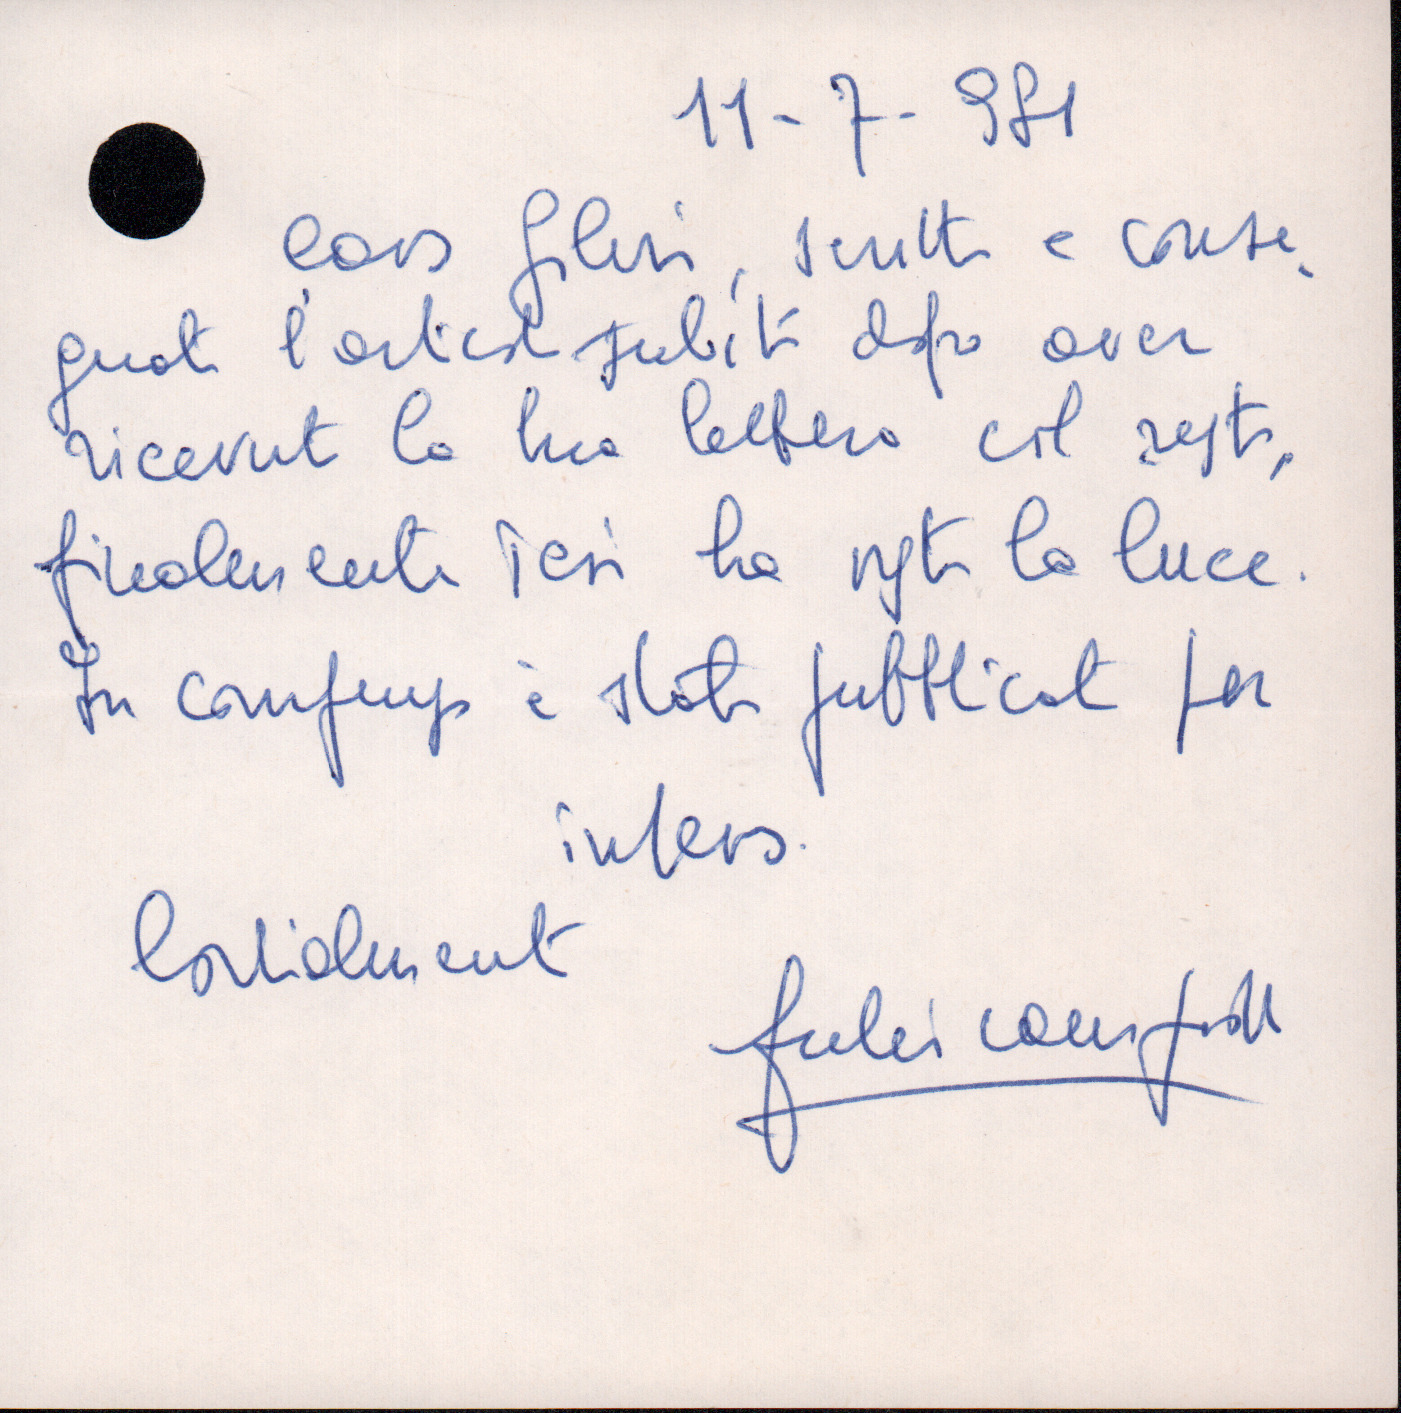 11-7-981
caro Gilioni, scritto e conse-
gnato l'articolo subito dopo aver
ricevuto la tua lettera col resto,
finalmente ieri ha visto la luce.
In compenso è stato pubblicato per
intero.
Cordialmente